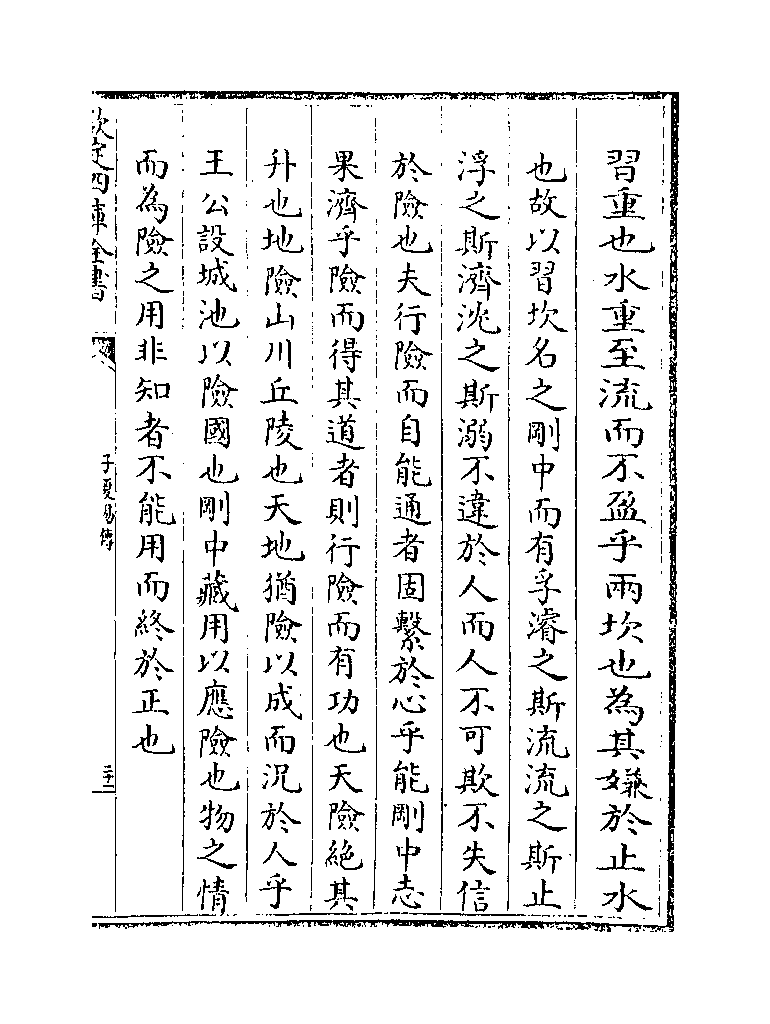 習重也水重至流而不盈乎兩坎也為其嫌於止水
也故以習坎名之剛中而有孚濬之斯流流之斯止
浮之斯濟沈之斯溺不違於人而人不可欺不失信
於險也夫行險而自能通者固繫於心乎能剛中志
果濟乎險而得其道者則行險而有功也天險絶其
升也地險山川丘陵也天地猶險以成而況於人乎
王公設城池以險國也剛中藏用以應險也物之情
而為險之用非知者不能用而終於正也
欽定四庫全書
子夏易傳